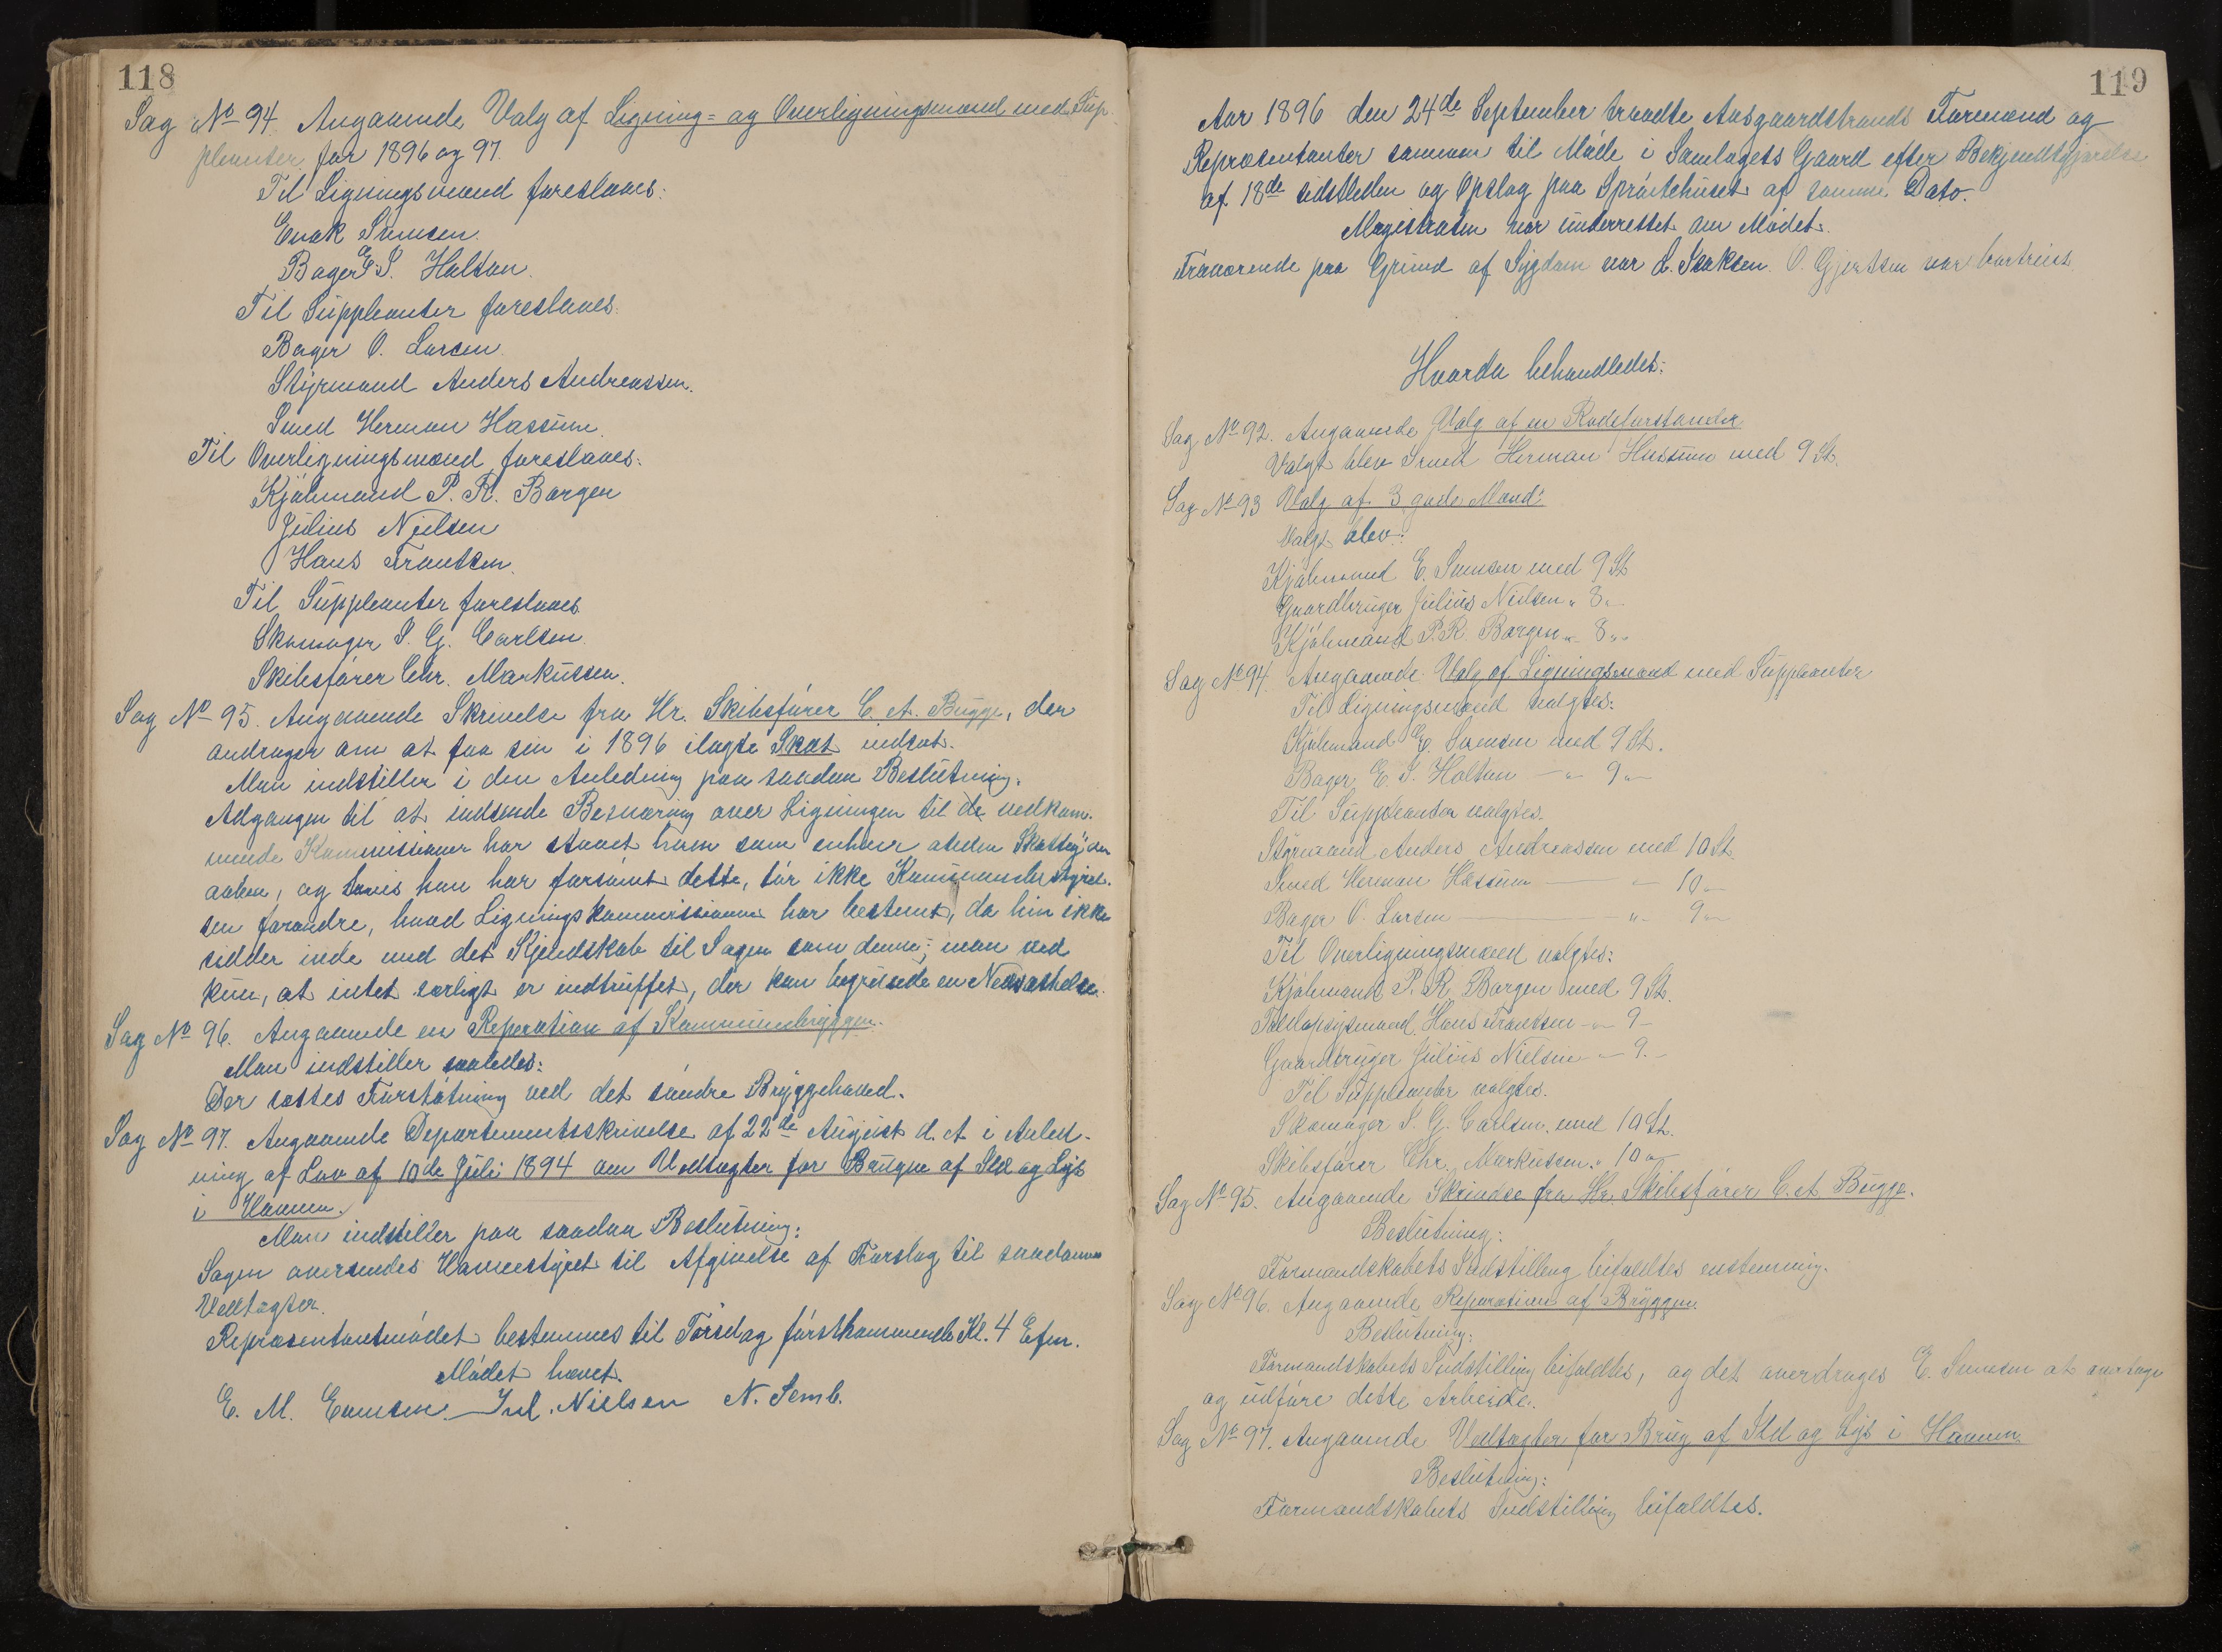 118
Sag No 94. Angaaende Valg af Ligning= og Overligningsmænd med Sup-
pleanter for 1896 og 97.
Til Ligningsmænd foreslaaes:
Enok Sumsen.
Bager E. S. Holtan.
Til Suppleanter foreslaaes:
Bager O. Larsen
Styrmand Anders Andreassen.
Smed Herman Hassum.
Til Overligningsmænd foreslaaes:
Kjøbmand P. R. Borgen
Julius Nielsen
Hans Frantsen.
Til Suppleanter foreslaaes
Skomager S. G. Carlsen.
Skibsfører Chr. Markussen.
Sag No 95. Angaaende Skrivelse fra Hr. Skibsfører C. A. Bugge, der
andrager om at faa sin i 1896 ilagte Skat nedsat.
Man indstiller i den Anledning paa saadan Beslutning.
Adgangen til at indsende Besværing over Ligningen til de vedkom-
mende Kommissioner har staaet ham som enhver anden Skatteyder
aaben, og hvis han har forsømt dette, tør ikke Kommunebestyrel-
sen forandre, hvad Ligningskommissionen har bestemt, da hin ikke
sidder inde med det Kjendskab til Sagen som denne; man ved
kun, at intet særligt er indtruffet, der kan begrunde en Nedsættelse.
Sag No 96. Angaaende en Reperation af Kommunebryggen.
Man indstiller saaledes:
Der sættes Forstøtning ved det søndre Bryggehoved.
Sag No 97. Angaaende Departementsskrivelse af 22de August d. A. i Anled-
ning af Lov af 10de Juli 1894 om Vedtægter for Brugen af Ild og Lys
i Havnen.
Man indstiller paa saadan Beslutning:
Sagen oversendes Havnestyret til Afgivelse af Forslag til saadanne
Vedtægter.
Repræsentantmødet bestemmes til Torsdag førstkommende Kl. 4 Efm.
Mødet hævet.
E. M. Evensen. Jul. Nielsen N. Semb.
119
Aar 1896 den 24de September traadte Aasgaardstrands Formænd og
Repræsentanter sammen til Møde i Samlagets Gaard efter Bekjendtgjørelse
af 18de sidstleden og Opslag paa Sprøitehuset af samme Dato.
Magistraten var underrettet om Mødet.
Fraværende paa Grund af Sygdom var L. Isaksen. O. Gjertsen var bortreist.
Hvorda behandledes:
Sag No 92. Angaaende Valg af en Rodeforstander
Valgt blev Smed Herman Hassum med 9 St.
Sag No 93 Valg af 3 gode Mænd:
Valgt blev:
Kjøbmand E. Sumsen med 9 St
Gaardbruger Julius Nielsen " 8 "
Kjøbmand P. R. Borgen " 8 "
Sag No 94. Angaaende Valg af Ligningsmænd med Suppleanter
Til Ligningsmænd valgtes:
Kjøbmand E. Sumsen med 9 St.
Bager E. S. Holtan — " 9 "
Til Suppleanter valgtes.
Styrmand Anders Andreassen med 10 St.
Smed Herman Hassum — " 10 "
Bager O. Larsen — " 9 "
Til Overligningsmænd valgtes:
Kjøbmand P. R. Borgen med 9 St.
Toldopsynsmand Hans Frantsen - " 9 -
Gaardbruger Julius Nielsen - " 9. -
Til Suppleanter valgtes.
Skomager S. G. Carlsen. med 10 St.
Skibsfører Chr. Markussen. " 10 "
Sag No 95. Angaaende Skrivelse fra Hr. Skibsfører C. A. Bugge.
Beslutning:
Formandskabets Indstilling bifaldtes enstemmig.
Sag No 96. Angaaende Reparation af Bryggen.
Beslutning:
Formandskabets Indstilling bifaldtes, og det overdrages E. Sumsen at overtage
og udføre dette Arbeide.
Sag No 97. Angaaende Vedtægter for Brug af Ild og Lys i Havnen
Beslutning:
Formandskabets Indstilling bifaldtes.